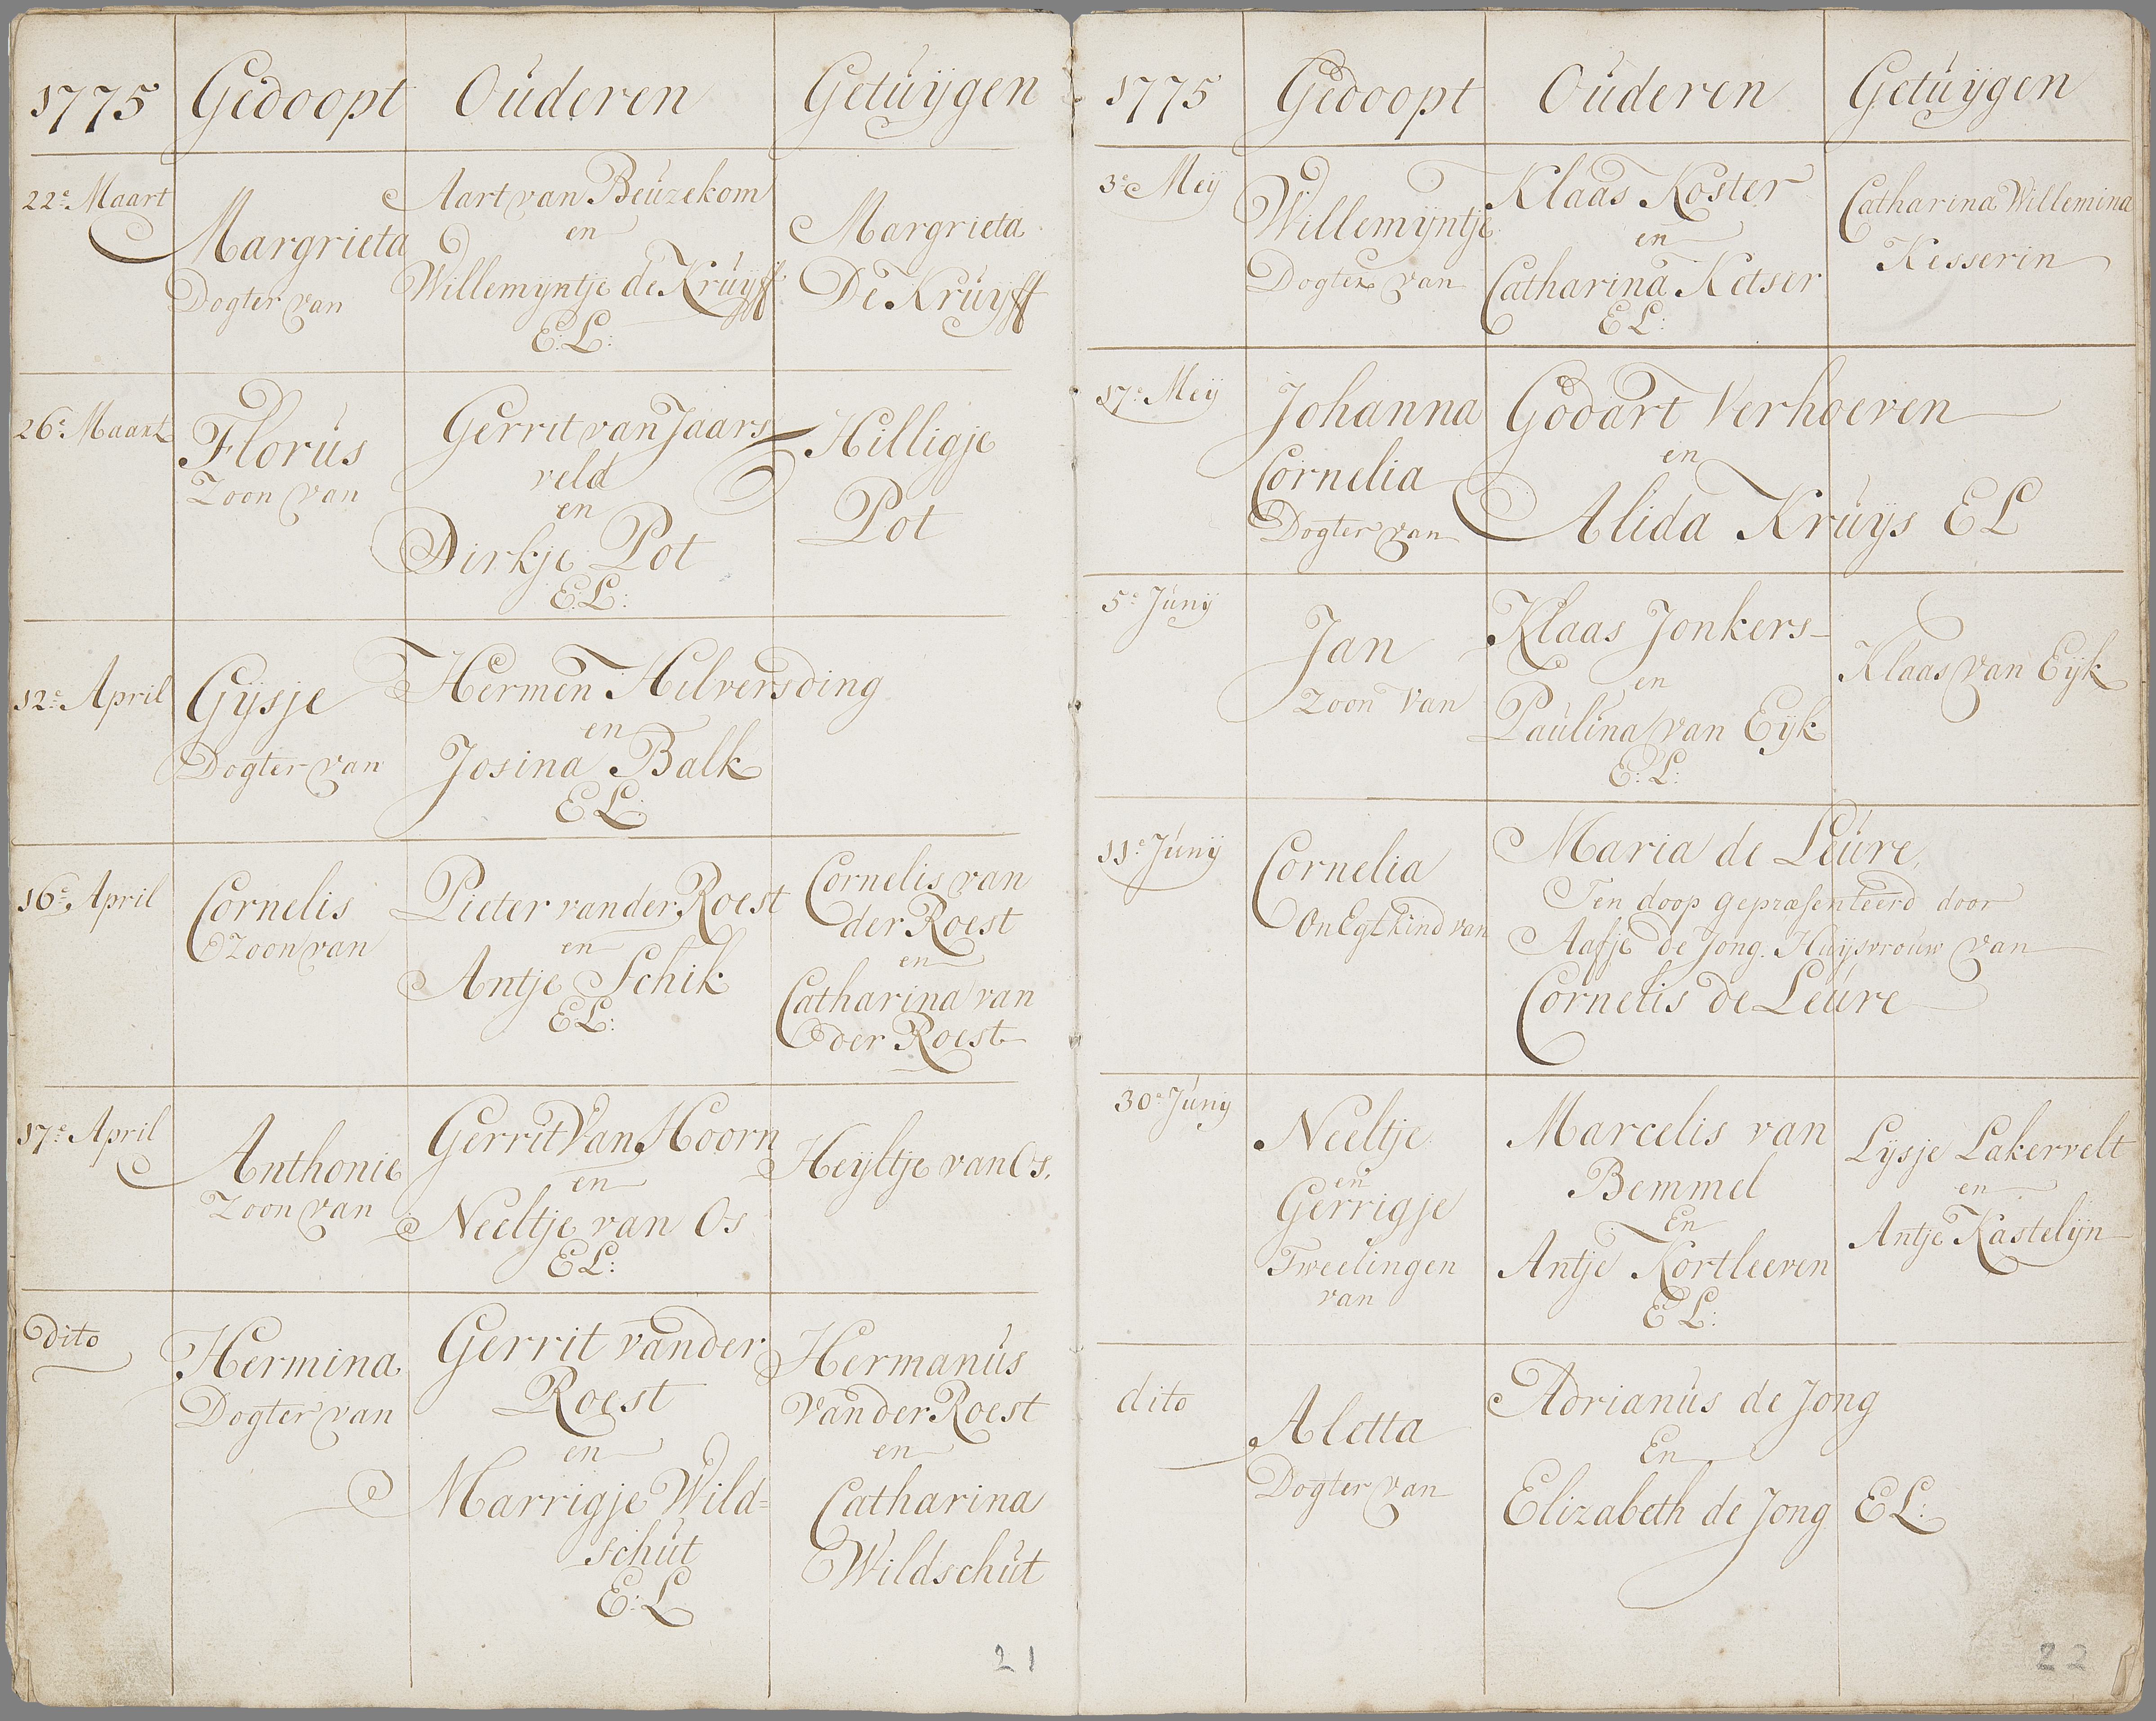 1775 Gedoopt Ouderen Getuijgen
22e Maart
Margrieta
Dogter van
Aart van Beuzekom
en
Willemijntje de Kruijff
E:L:
Margrieta
De Kruijff
26e Maart
Florus
Zoon van
Gerrit van Jaars
veld
en
Dirkje Pot
E:L:
Hilligje
Pot
12e April
Gijsje
Dogter van
Hermen Hilversding
en
Josina Balk
E L:
16e April
Cornelis
Zoon van
Pieter van der Roest
en
Antje Schik
E L:
Cornelis van
der Roest
en
Catharina van
der Roest
17e April
Anthonie
Zoon van
Gerrit Van Hoorn
en
Neeltje van Os
E L:
Heijltje van Os.
dito
Hermina
Dogter van
Gerrit vander
Roest
en
Marrigje Wild=
schut
E:L
Hermanus
vander Roest
en
Catharina
Wildschut
21
1775 Gedoopt Ouderen Getuijgen
3e Meij
Willemijntje
Dogter van
Klaas Koster
en
Catharina Ketser
E L:
Catharina Willemina
Kesserin
17e Meij
Johanna
Cornelia
Dogter van
Godart Verhoeven
en
Alida Kruijs E L
5e Junij
Jan
Zoon Van
Klaas Jonkers
en
Paulina van Eijk
E: L:
Klaas van Eijk
11e Junij
Cornelia
OnEgt kind van
Maria de Leure,
Ten doop gepræsenteerd door
Aafje de Jong. Huijsvrouw van
Cornelis de Leure
30e Junij
Neeltje
en
Gerrigje
Tweelingen
van
Marcelis van
Bemmel
En
Antje Kortleeven
E L:
Lijsje Lakervelt
en
Antje Kastelijn
dito
Aletta
Dogter van
Adrianus de Jong
En
Elizabeth de Jong E L:
22